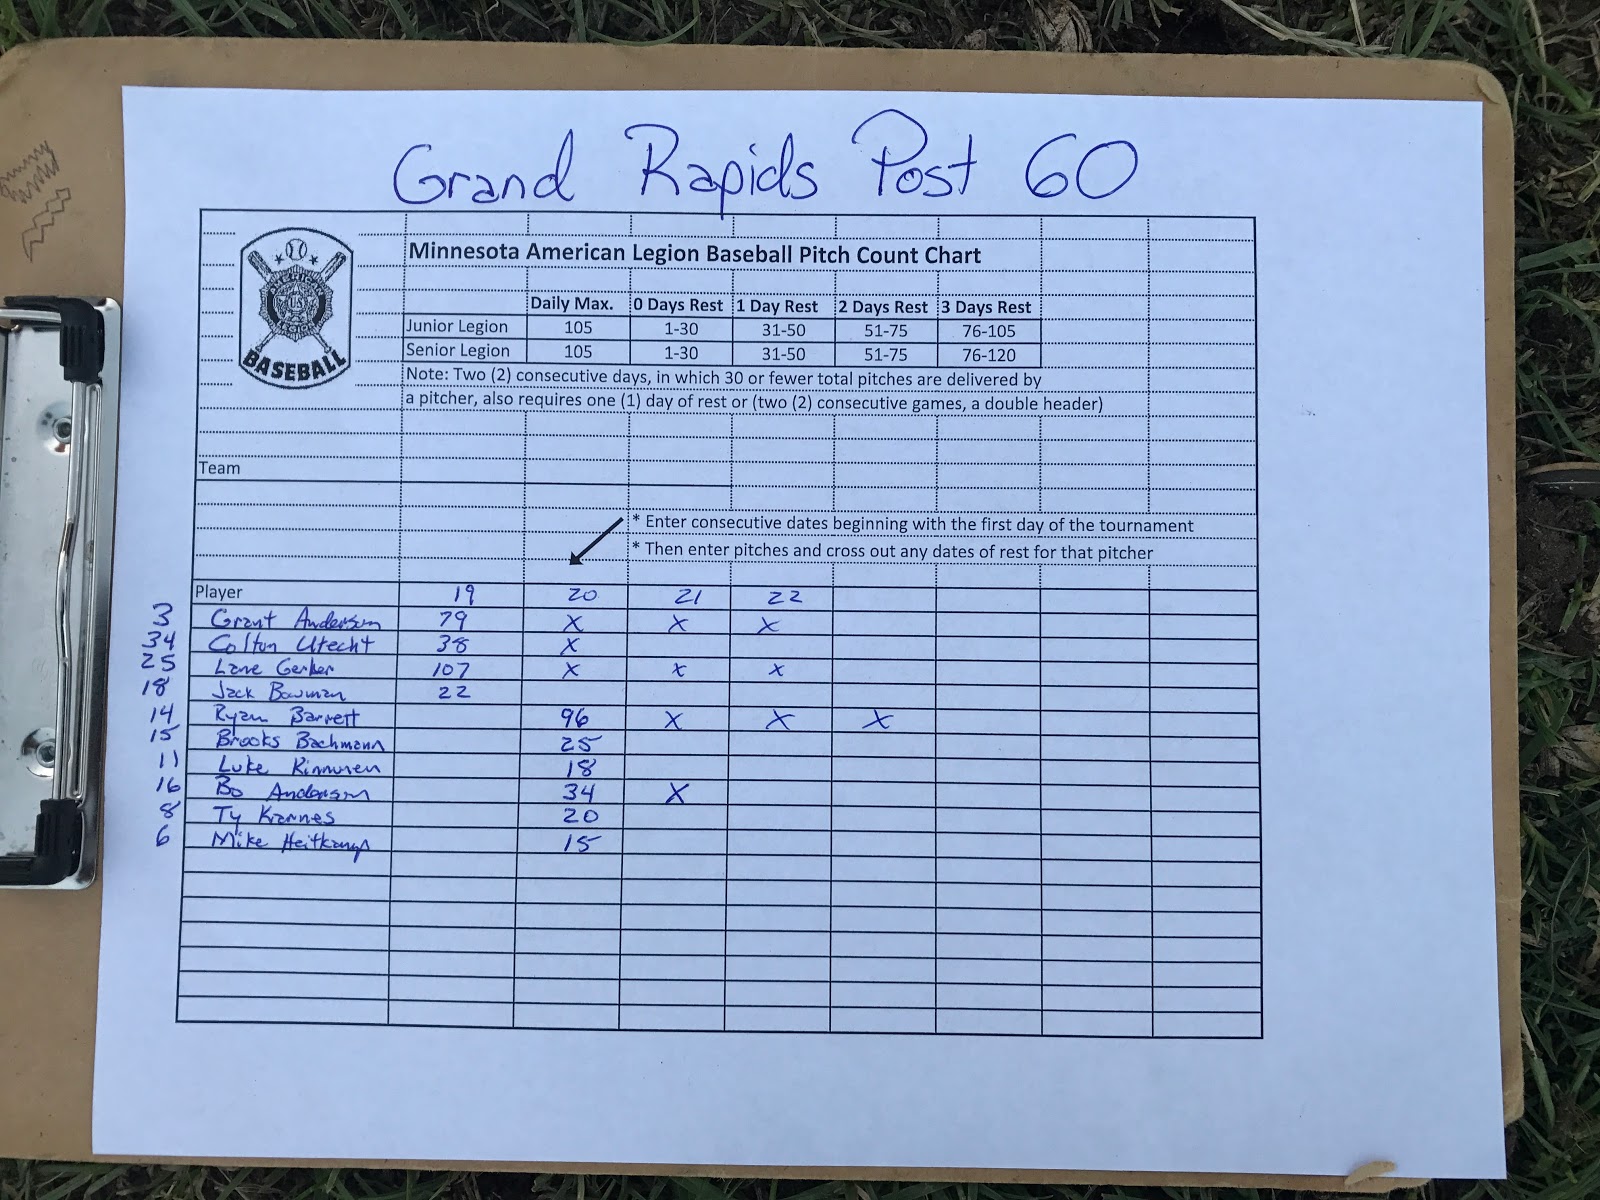 Grand Rapids Post 60
Minnesota American Legion Baseball Pitch Count Chart
Daily Max. 0 Days Rest 1 Day Rest 2 Days Rest 3 Days Rest
Junior Legion 105 1-30 31-50 51-75 76-105
Senior Legion 105 1-30 31-50 51-75 76-120
BASEBALL
Note: Two (2) consecutive days, in which 30 or fewer total pitches are delivered by
a pitcher, also requires one (1) day of rest or (two (2) consecutive games, a double header)
Team
* Enter consecutive dates beginning with the first day of the tournament
* Then enter pitches and cross out any dates of rest for that pitcher
Player 19 20 21 22
3 Grant Anderson 79 X X X
34 Colton Utecht 38 X
25 Lane Gerber 107 X X X
18 Jack Bowman 22
14 Ryan Barrett 96 X X X
15 Brooks Bachmann 25
11 Luke 18
16 Bo Anderson 34 X
8 Ty Karnes 20
6 Mike Heitkamp 15